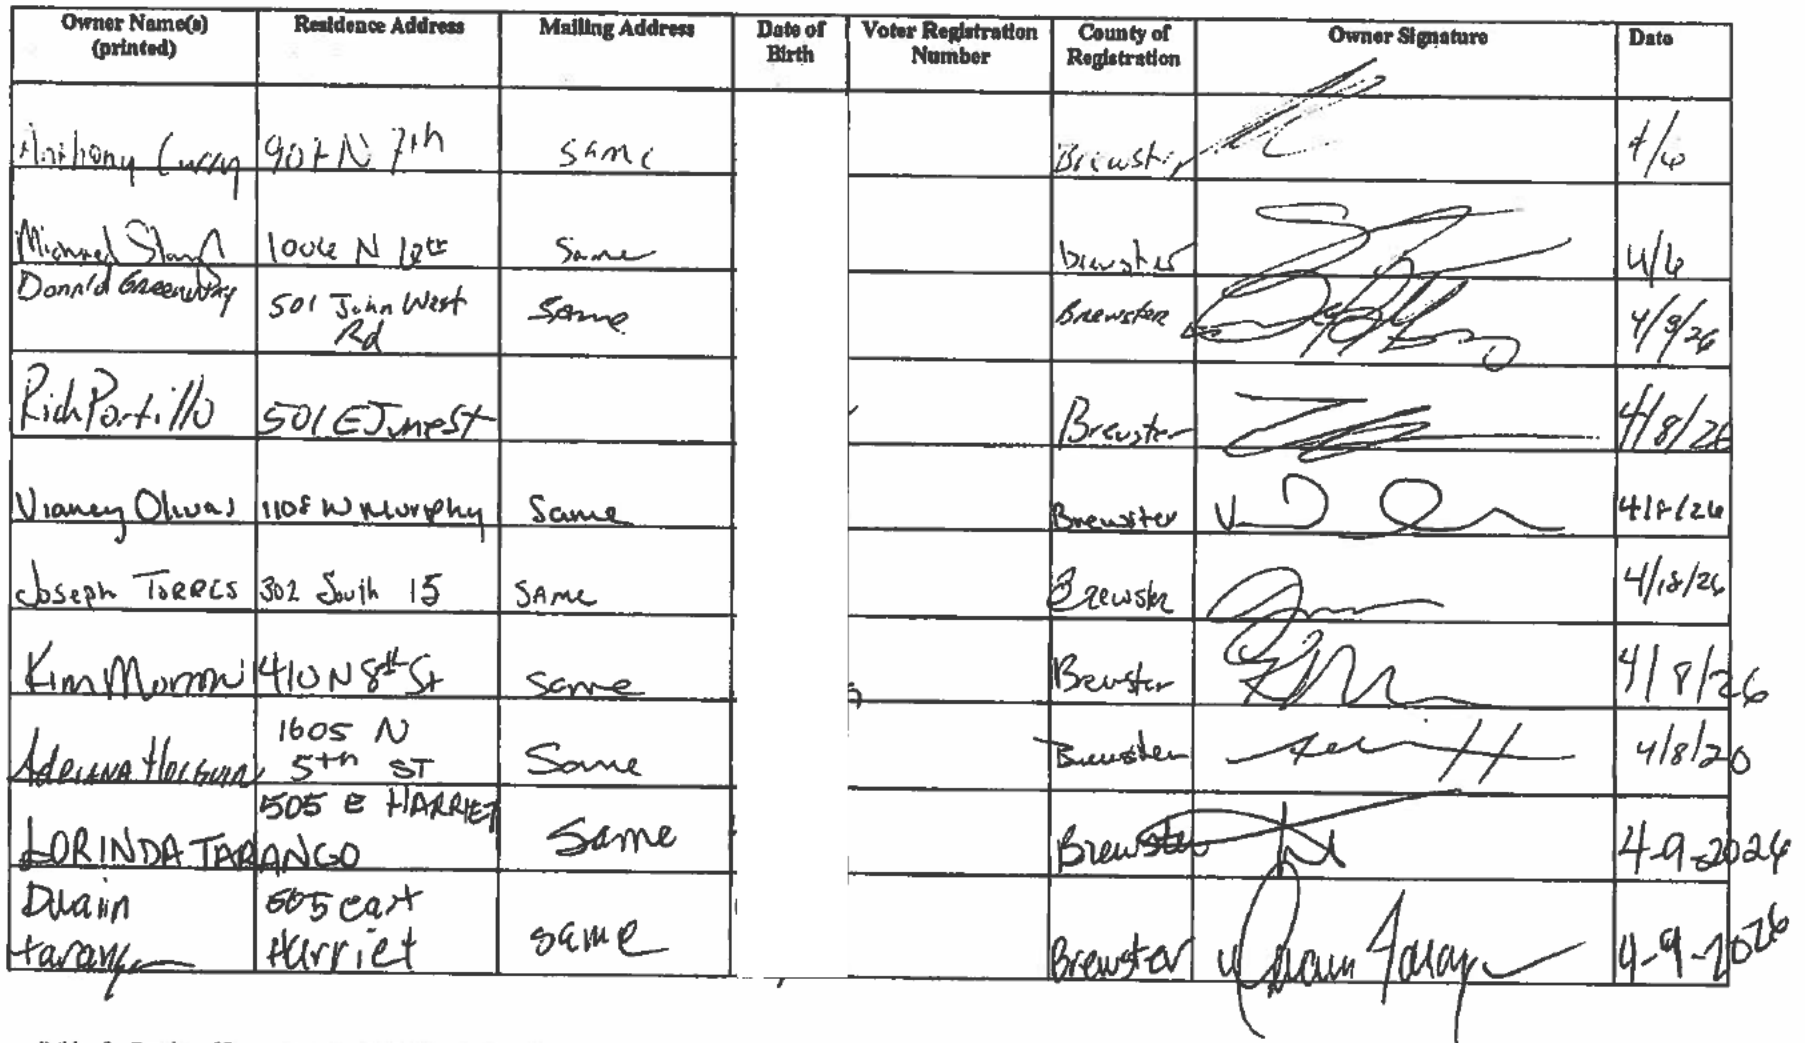 Owner Name(s) (printed) Residence Address Mailing Address Date of Birth Voter Registration Number County of Registration Owner Signature Date
Anthony Curry 907 N 7th same Brewster 4/6
Michael 1006 N same brewster 4/6
Donald Greenway 501 John West Rd Same Brewster 4/9/26
Rich Portillo 501 E June St Brewster 4/8/26
Vianey Olivas 1108 W Murphy Same Brewster 4/8/26
Joseph Torres 302 South 15 SAME Brewster 4/18/26
Kim 410 N 8th St same Brewster 4/8/26
Adriana Holguin 1605 N 5th ST Same Brewster 4/8/20
LORINDA TARANGO 505 E HARRIET Same Brewster 4-9-2026
Dwain Tarango 505 east Harriet same Brewster 4-9-2026